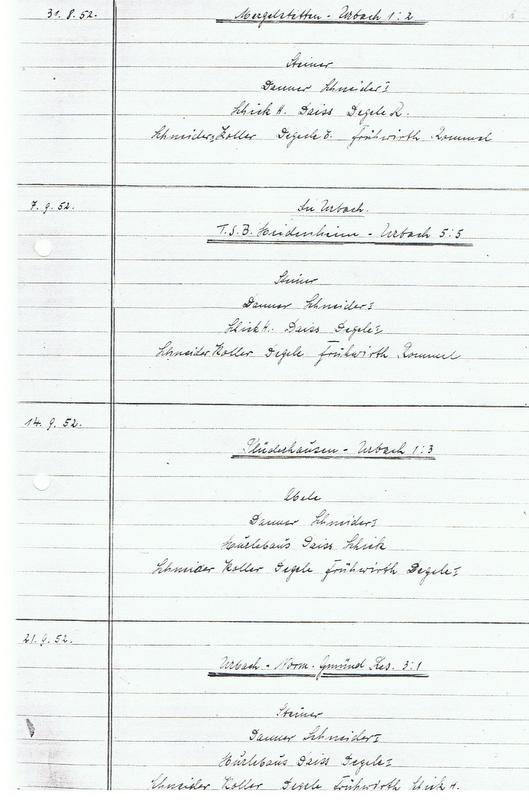 31. 8. 52. Mergelstetten - Urbach 1:2
Steiner
Danner Schneider I
Schick H. Daiss Degele R.
Schneider Koller Degele E. Frühwirth Rommel
7. 9. 52. In Urbach.
T.S.B. Heidenheim - Urbach 5:5
Steiner
Danner Schneider I
Schick H. Daiss Degele I
Schneider Koller Degele Frühwirth Rommel
14. 9. 52.
Plüderhausen - Urbach 1:3
Abele
Danner Schneider I
Hürlebaus Daiss Schick
Schneider Koller Degele Frühwirth Degele I
21. 9. 52.
Urbach - Norm. Gmünd Res. 3:1
Steiner
Danner Schneider I
Hürlebaus Daiss Degele I
Schneider Koller Degele Frühwirth Schick H.